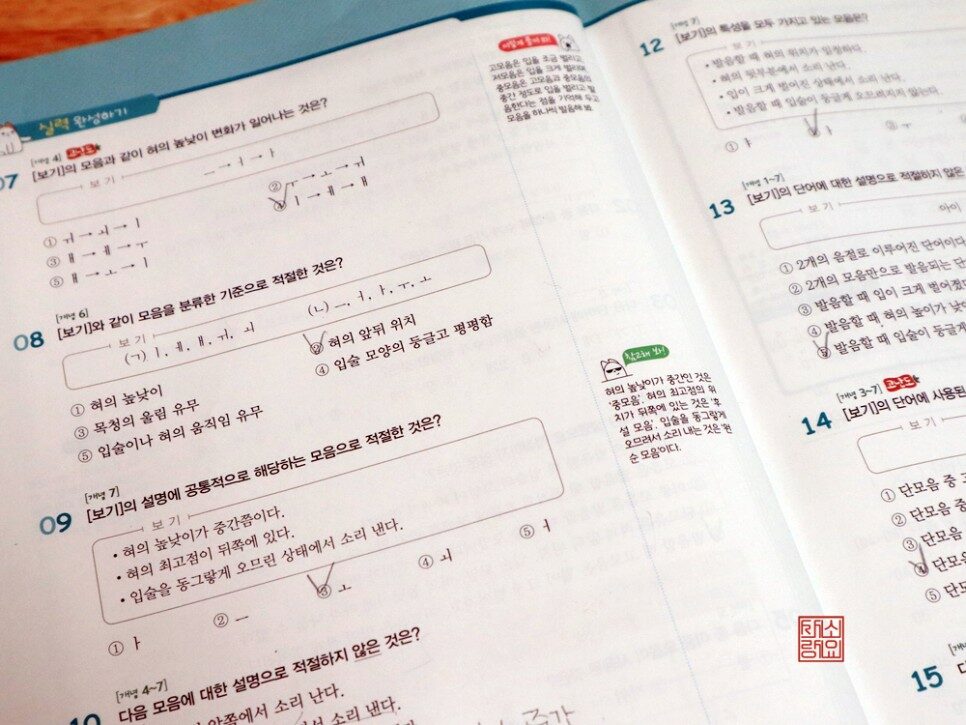 실력 완성하기
07
[개념 4] 고난도
[보기]의 모음과 같이 혀의 높낮이 변화가 일어나는 것은?
보기
ㅡ → ㅓ → ㅏ
① ㅟ → ㅚ → ㅣ
② ㅜ → ㅗ → ㅟ
③ ㅐ → ㅔ → ㅜ
④ ㅣ → ㅔ → ㅐ
⑤ ㅐ → ㅗ → ㅣ
08
[개념 6]
[보기]와 같이 모음을 분류한 기준으로 적절한 것은?
보기
(ㄱ) ㅣ, ㅔ, ㅐ, ㅟ, ㅚ
(ㄴ) ㅡ, ㅓ, ㅏ, ㅜ, ㅗ
① 혀의 높낮이
② 혀의 앞뒤 위치
③ 목청의 울림 유무
④ 입술 모양의 둥글고 평평함
⑤ 입술이나 혀의 움직임 유무
09
[개념 7]
[보기]의 설명에 공통적으로 해당하는 모음으로 적절한 것은?
보기
• 혀의 높낮이가 중간쯤이다.
• 혀의 최고점이 뒤쪽에 있다.
• 입술을 동그랗게 오므린 상태에서 소리 낸다.
① ㅏ
② ㅡ
③ ㅗ
④ ㅚ
⑤ ㅓ
10
[개념 4~7]
다음 모음에 대한 설명으로 적절하지 않은 것은?
앞쪽에서 소리 난다.
에서 소리 난다.
이렇게 풀어 봐!
고모음은 입을 조금 벌리고
저모음은 입을 크게 벌리며
중모음은 고모음과 중모음의
중간 정도로 입을 벌리고 발
음한다는 점을 기억해 두고
모음을 하나씩 발음해 봐.
참고해 봐!
혀의 높낮이가 중간인 것은
'중모음', 혀의 최고점의 위
치가 뒤쪽에 있는 것은 '후
설 모음', 입술을 동그랗게
오므려서 소리 내는 것은 '원
순 모음'이다.
12
[개념 7]
[보기]의 특성을 모두 가지고 있는 모음은?
보기
• 발음할 때 혀의 위치가 일정하다.
• 혀의 뒷부분에서 소리 난다.
• 입이 크게 벌어진 상태에서 소리 난다.
• 발음할 때 입술이 둥글게 오므려지지 않는다.
① ㅑ
② ㅏ
③ ㅜ
13
[개념 1~7]
[보기]의 단어에 대한 설명으로 적절하지 않은
보기
아이
① 2개의 음절로 이루어진 단어이다
② 2개의 모음만으로 발음되는 단
③ 발음할 때 입이 크게 벌어졌
④ 발음할 때, 혀의 높이가 낮
⑤ 발음할 때 입술이 둥글게
14
[개념 3~7] 고난도
[보기]의 단어에 사용된
보기
① 단모음 중
② 단모음 중
③ 단모음
④ 단모음
⑤ 단모
15